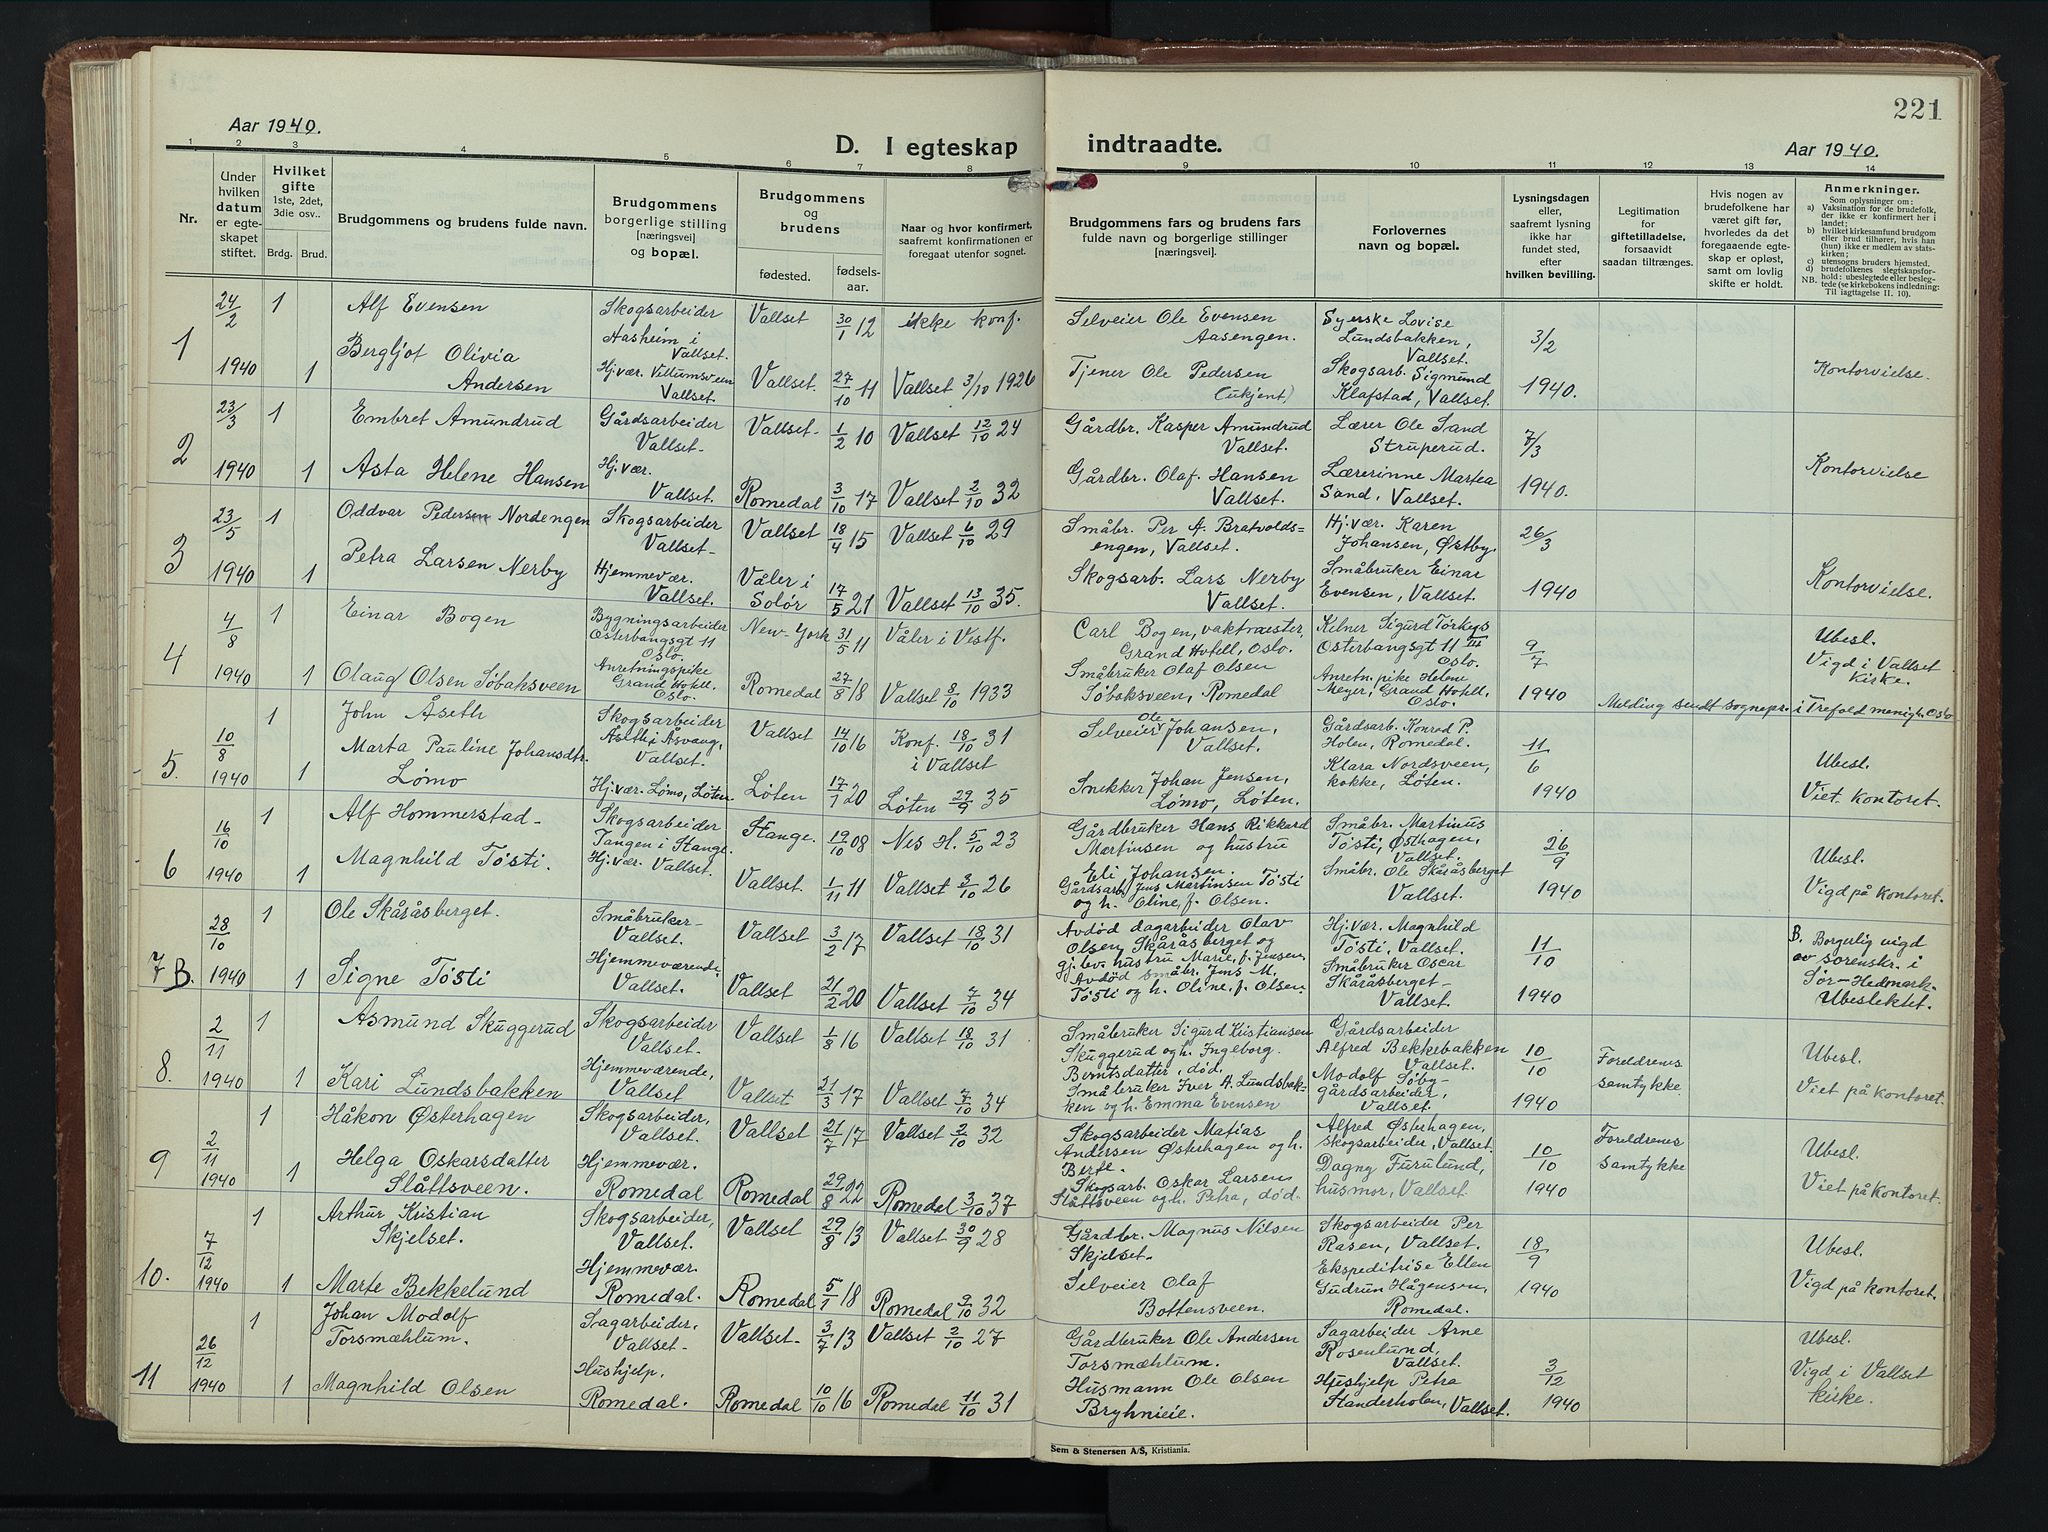 221
Aar 1940.
D. I egteskap indtraadte.
Aar 1940.
1 2 3 4 5 6 7 8 9 10 11 12 13 14
Nr.
Under hvilken datum er egteskapet stiftet.
Hvilket gifte 1ste, 2det, 3die osv..
Brdg. Brud.
Brudgommens og brudens fulde navn.
Brudgommens borgerlige stilling [næringsvei] og bopæl.
Brudgommens og brudens
fødested.
fødselsaar.
Naar og hvor konfirmert, saafremt konfirmationen er foregaat utenfor sognet.
Brudgommens fars og brudens fars fulde navn og borgerlige stillinger [næringsvei].
Forlovernes navn og bopæl.
Lysningsdagen eller, saafremt lysning ikke har fundet sted, efter hvilken bevilling.
Legitimation for giftetilladelse, forsaavidt saadan tiltrænges.
Hvis nogen av brudefolkene har været gift før, hvorledes da det foregaaende egteskap er opløst, samt om lovlig skifte er holdt.
Anmerkninger.
Som oplysninger om:
a) Vaksination for de brudefolk, der ikke er konfirmert her i landet;
b) hvilket kirkesamfund brudgom eller brud tilhører, hvis han (hun) ikke er medlem av statskirken;
c) utensogns bruders hjemsted.
d) brudefolkenes slegtskapsforhold: ubeslegtede eller beslegtede (se kirkebokens indledning: Til iagttagelse II. 10).
NB.
1
24/2 1940
1
Alf Evensen
Skogsarbeider Aasheim i Vallset.
Vallset
30/1 12
ikke konf.
Selveier Ole Evensen Aasengen.
Syerske Lovise Lundsbakken, Vallset.
3/2 1940.
1
Bergljot Olivia Andersen
Hj.vær. Villumsveen Vallset.
Vallset.
27/10 11
Vallset 3/10 1926
Tjener Ole Pedersen (ukjent)
Skogsarb. Sigmund Klafstad, Vallset.
Kontorvielse.
2
23/3 1940
1
Embret Amundrud
Gårdsarbeider Vallset.
Vallset.
1/2 10
Vallset 12/10 24
Gårdbr. Kasper Amundrud Vallset.
Lærer Ole Sand Struperud.
7/3 1940.
1
Asta Helene Hansen
Hj.vær. Vallset.
Romedal
3/10 17
Vallset 2/10 32
Gårdbr. Olaf Hansen Vallset.
Lærerinne Martea Sand, Vallset.
Kontorvielse
3
23/5 1940
1
Oddvar Pedersen Nordengen
Skogsarbeider Vallset.
Vallset
18/4 15
Vallset 6/10 29
Småbr. Per A. Bratvoldsengen, Vallset.
Hj.vær. Karen Johansen, Østby.
26/3 1940
1
Petra Larsen Nerby
Hjemmevær. Vallset.
Våler i Solør
17/5 21
Vallset 13/10 35.
Skogsarb. Lars Nerby Vallset.
Småbruker Einar Evensen, Vallset.
Kontorvielse.
4
4/8 1940
1
Einar Bogen
Bygningsarbeider Østerbangsgt 11 Oslo.
New-York
31/5 11
Våler i Vestf.
Carl Bogen, vaktmester, Grand Hotell, Oslo.
Kelner Sigurd Torkegs Østerbangsgt 11 III Oslo.
9/7 1940
1
Olaug Olsen Søbaksveen
Anretningspike Grand Hotell, Oslo.
Romedal
27/8 18
Vallset 8/10 1933
Småbruker Olaf Olsen Søbaksveen, Romedal
Anretn.pike Helene Meyer, Grand Hotell, Oslo.
Ubesl. Vigd i Vallset Kirke.
Melding sendt sognepr. i Trefold. menigh. Oslo
5.
10/8 1940
1
John Åseth
Skogsarbeider Åseth i Åsvang, Vallset.
Vallset
14/10 16
Konf. 18/10 31 i Vallset
Selveier Ole Johansen, Vallset.
Gårdsarb. Konrad P. Holen, Romedal.
11/6 1940
1
Marta Pauline Johansdtr. Lømo
Hj.vær. Lømo, Løten.
Løten
17/1 20
Løten 29/9 35
Snekker Johan Jensen, Lømo, Løten.
Klara Nordsveen, kokke, Løten.
Ubesl. Viet. kontoret.
6
16/10 1940
1
Alf Hommerstad
Skogsarbeider Tangen i Stange.
Stange.
19/10 08
Nes H. 5/10 23
Gårdbruker Hans Rikkard Martinsen og hustru Eli Johansen.
Småbr. Martinus Tøsti, Østhagen, Vallset.
26/9 1940
1
Magnhild Tøsti.
Hj.vær. Vallset.
Vallset.
1/11 11
Vallset 3/10 26
Gårdsarb. Jens Martinsen Tøsti og h. Oline, f. Olsen.
Småbr. Ole Skåråsberget Vallset.
Ubesl. Vigd på kontoret.
7 B.
28/10 1940
1
Ole Skåråsberget.
Småbruker Vallset.
Vallset
3/2 17
Vallset 18/10 31
Avdød dagarbeider Olav Olsen Skåråsberget og gj.lev. hustru Marie, f. Jensen,
Hj.vær. Magnhild Tøsti, Vallset.
11/10 1940
1
Signe Tøsti
Hjemmeværende, Vallset.
Vallset
21/2 20
Vallset 7/10 34
Avdød småbr. Jens M. Tøsti og h. Oline, f. Olsen.
Småbruker Oscar Skåråsberget Vallset.
B. Borgerlig vigd av sorenskr. i Sør-Hedmark. Ubeslektet.
8.
2/11 1940
1
Asmund Skuggerud
Skogsarbeider Vallset.
Vallset
1/8 16
Vallset 18/10 31
Småbruker Sigurd Kristiansen Skuggerud og h. Ingeborg. Berntsdatter, død.
Gårdsarbeider Alfred Bekkebakken Vallset.
10/10 1940
Foreldrenes samtykke
1
Kari Lundsbakken
Hjemmeværende, Vallset
Vallset
21/3 17
Vallset 7/10 34
Småbruker Iver A. Lundsbakken og h. Emma Evensen
Modolf Søby gårdsarbeider, Vallset.
Ubesl. Viet på kontoret.
9
2/11 1940
1
Håkon Østerhagen
Skogsarbeider, Vallset.
Vallset
21/7 17
Vallset 2/10 32
Skogsarbeider Matias Andersen Østerhagen og h. Berte.
Alfred Østerhagen, skogsarbeider, Vallset.
10/10 1940
Foreldrenes samtykke
1
Helga Oskarsdatter Slåttsveen.
Hjemmevær. Romedal
Romedal
29/8 22
Romedal 3/10 37
Skogsarb. Oskar Larsen Slåttsveen og h. Petra, død.
Dagny Furulund, husmor, Vallset.
Ubesl. Viet på kontoret.
10.
7/12 1940
1
Arthur Kristian Skjelset.
Skogsarbeider, Vallset.
Vallset
29/8 13
Vallset 30/9 28
Gårdbr. Magnus Nilsen Skjelset.
Skogsarbeider Per Rasen, Vallset.
18/9 1940
1
Marte Bekkelund
Hjemmevær. Romedal.
Romedal
5/1 18
Romedal 9/10 32
Selveier Olaf Bottensveen.
Ekspeditrise Ellen Gudrun Hågensen, Romedal.
Ubesl. Vigd på kontoret.
11
26/12 1940
1
Johan Modolf Torsmæhlum.
Sagarbeider, Vallset.
Vallset.
3/7 13
Vallset 2/10 27
Gårdbruker Ole Andersen Torsmæhlum.
Sagarbeider Arne Rosenlund, Vallset.
3/12 1940
1
Magnhild Olsen
Hushjelp, Romedal.
Romedal
10/10 16
Romedal 11/10 31
Husmann Ole Olsen Bryhnieie.
Hushjelp Petra Standerholen, Vallset.
Ubesl. Vigd i Vallset kirke.
Sem & Stenersen A/S, Kristiania.